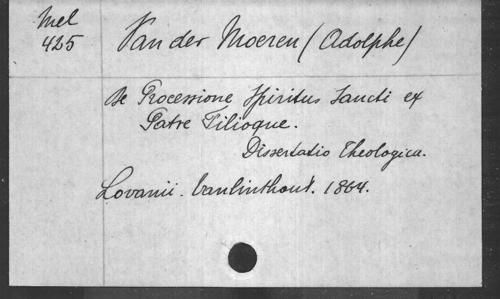 Mel
425
Van der Moeren (Adolphe)
De Processione Spiritus Sancti ex
Patre Filioque.
Dissertatio Theologica.
Lovanii. Vanlinthout. 1864.